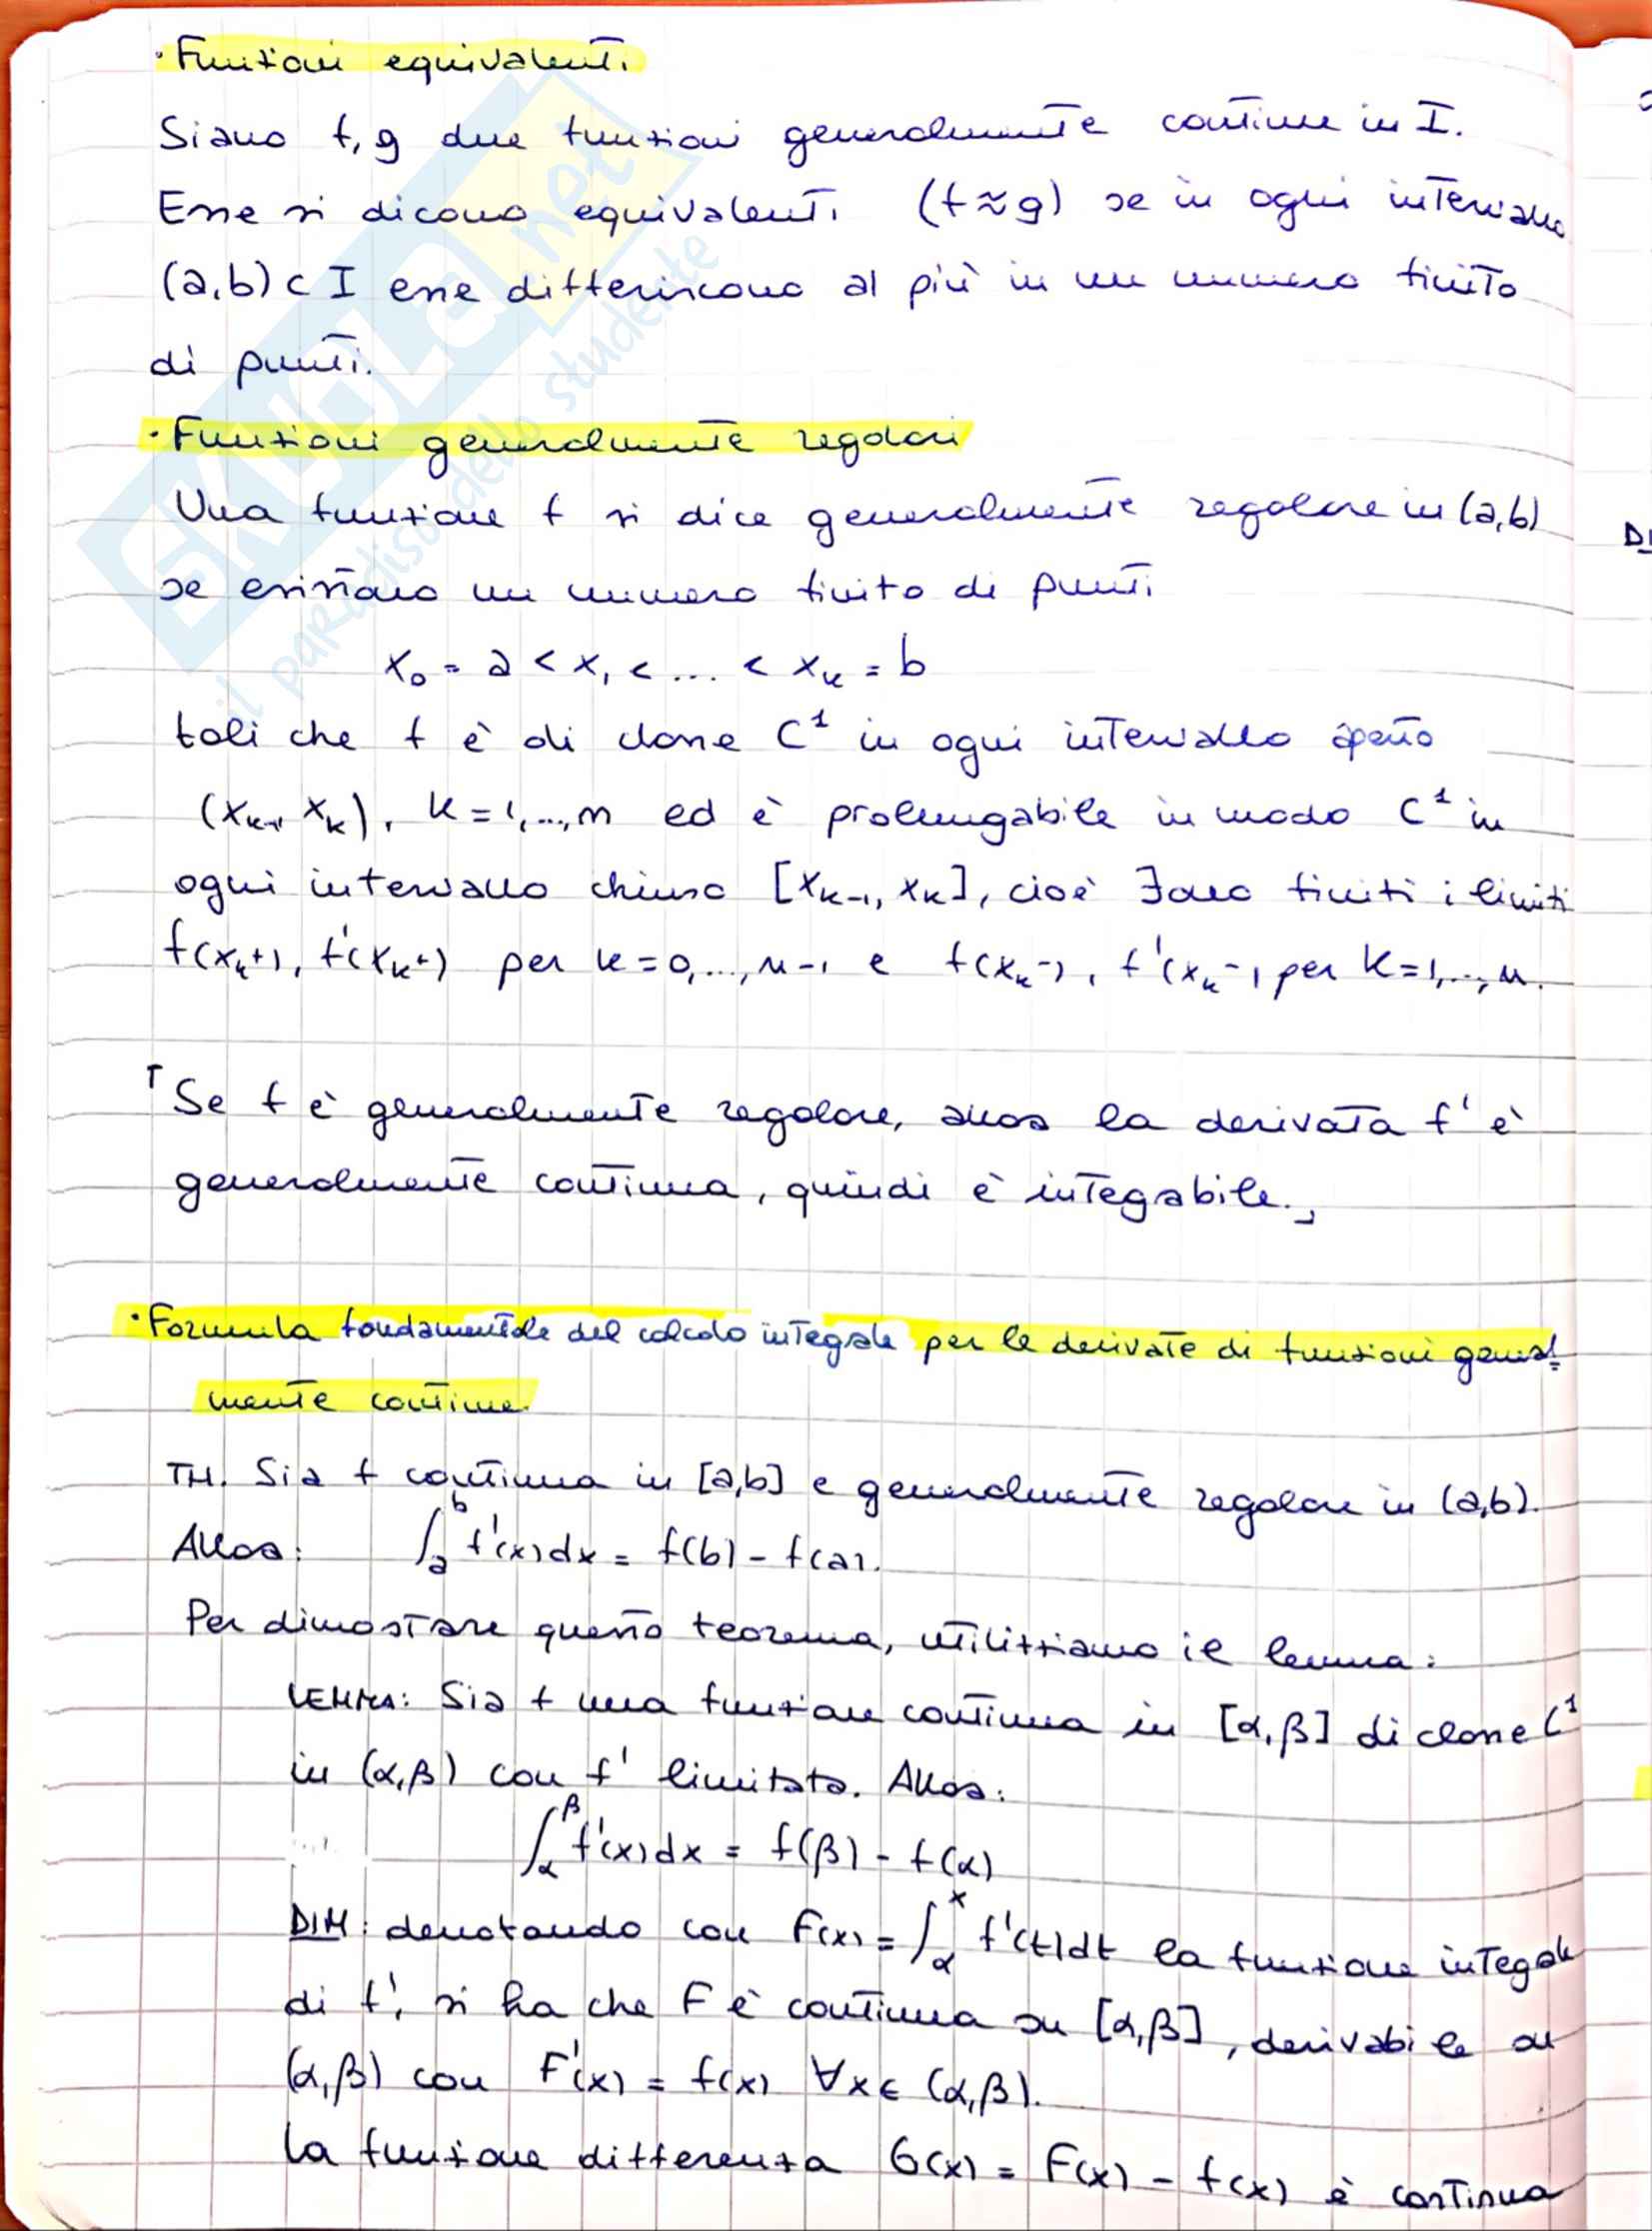 · Funzioni equivalenti
Siano f, g due funzioni generalmente continue in I.
Esse si dicono equivalenti (f≈g) se in ogni intervallo
(a,b) ⊂ I esse differiscono al più in un numero finito
di punti.
· Funzioni generalmente regolari
Una funzione f si dice generalmente regolare in (a,b)
se esistono un numero finito di punti
x₀ = a < x₁ < ... < xₖ = b
tali che f è di classe C¹ in ogni intervallo aperto
(xₖ₋₁, xₖ), k=1,...,n ed è prolungabile in modo C¹ in
ogni intervallo chiuso [xₖ₋₁, xₖ], cioè ∃ono finiti i limiti
f(xₖ+), f'(xₖ+) per k=0,...,n-1 e f(xₖ-), f'(xₖ-) per k=1,...,n.
⌈Se f è generalmente regolare, allora la derivata f' è
generalmente continua, quindi è integabile.⌋
· Formula fondamentale del calcolo integrale per le derivate di funzioni general-
mente continue.
TH. Sia f continua in [a,b] e generalmente regolare in (a,b).
Allora: ∫ₐᵇ f'(x)dx = f(b) - f(a).
Per dimostrare questo teorema, utilizziamo il lemma:
LEMMA: Sia f una funzione continua in [α,β] di classe C¹
in (α,β) con f' limitata. Allora:
∫_α^β f'(x)dx = f(β) - f(α)
DIM: denotando con F(x) = ∫_α^x f'(t)dt la funzione integrale
di f', si ha che F è continua su [α,β], derivabile su
(α,β) con F'(x) = f(x) ∀x∈ (α,β).
La funzione differenza G(x) = F(x) - f(x) è continua
SKUOLA.net
il paradiso dello studente